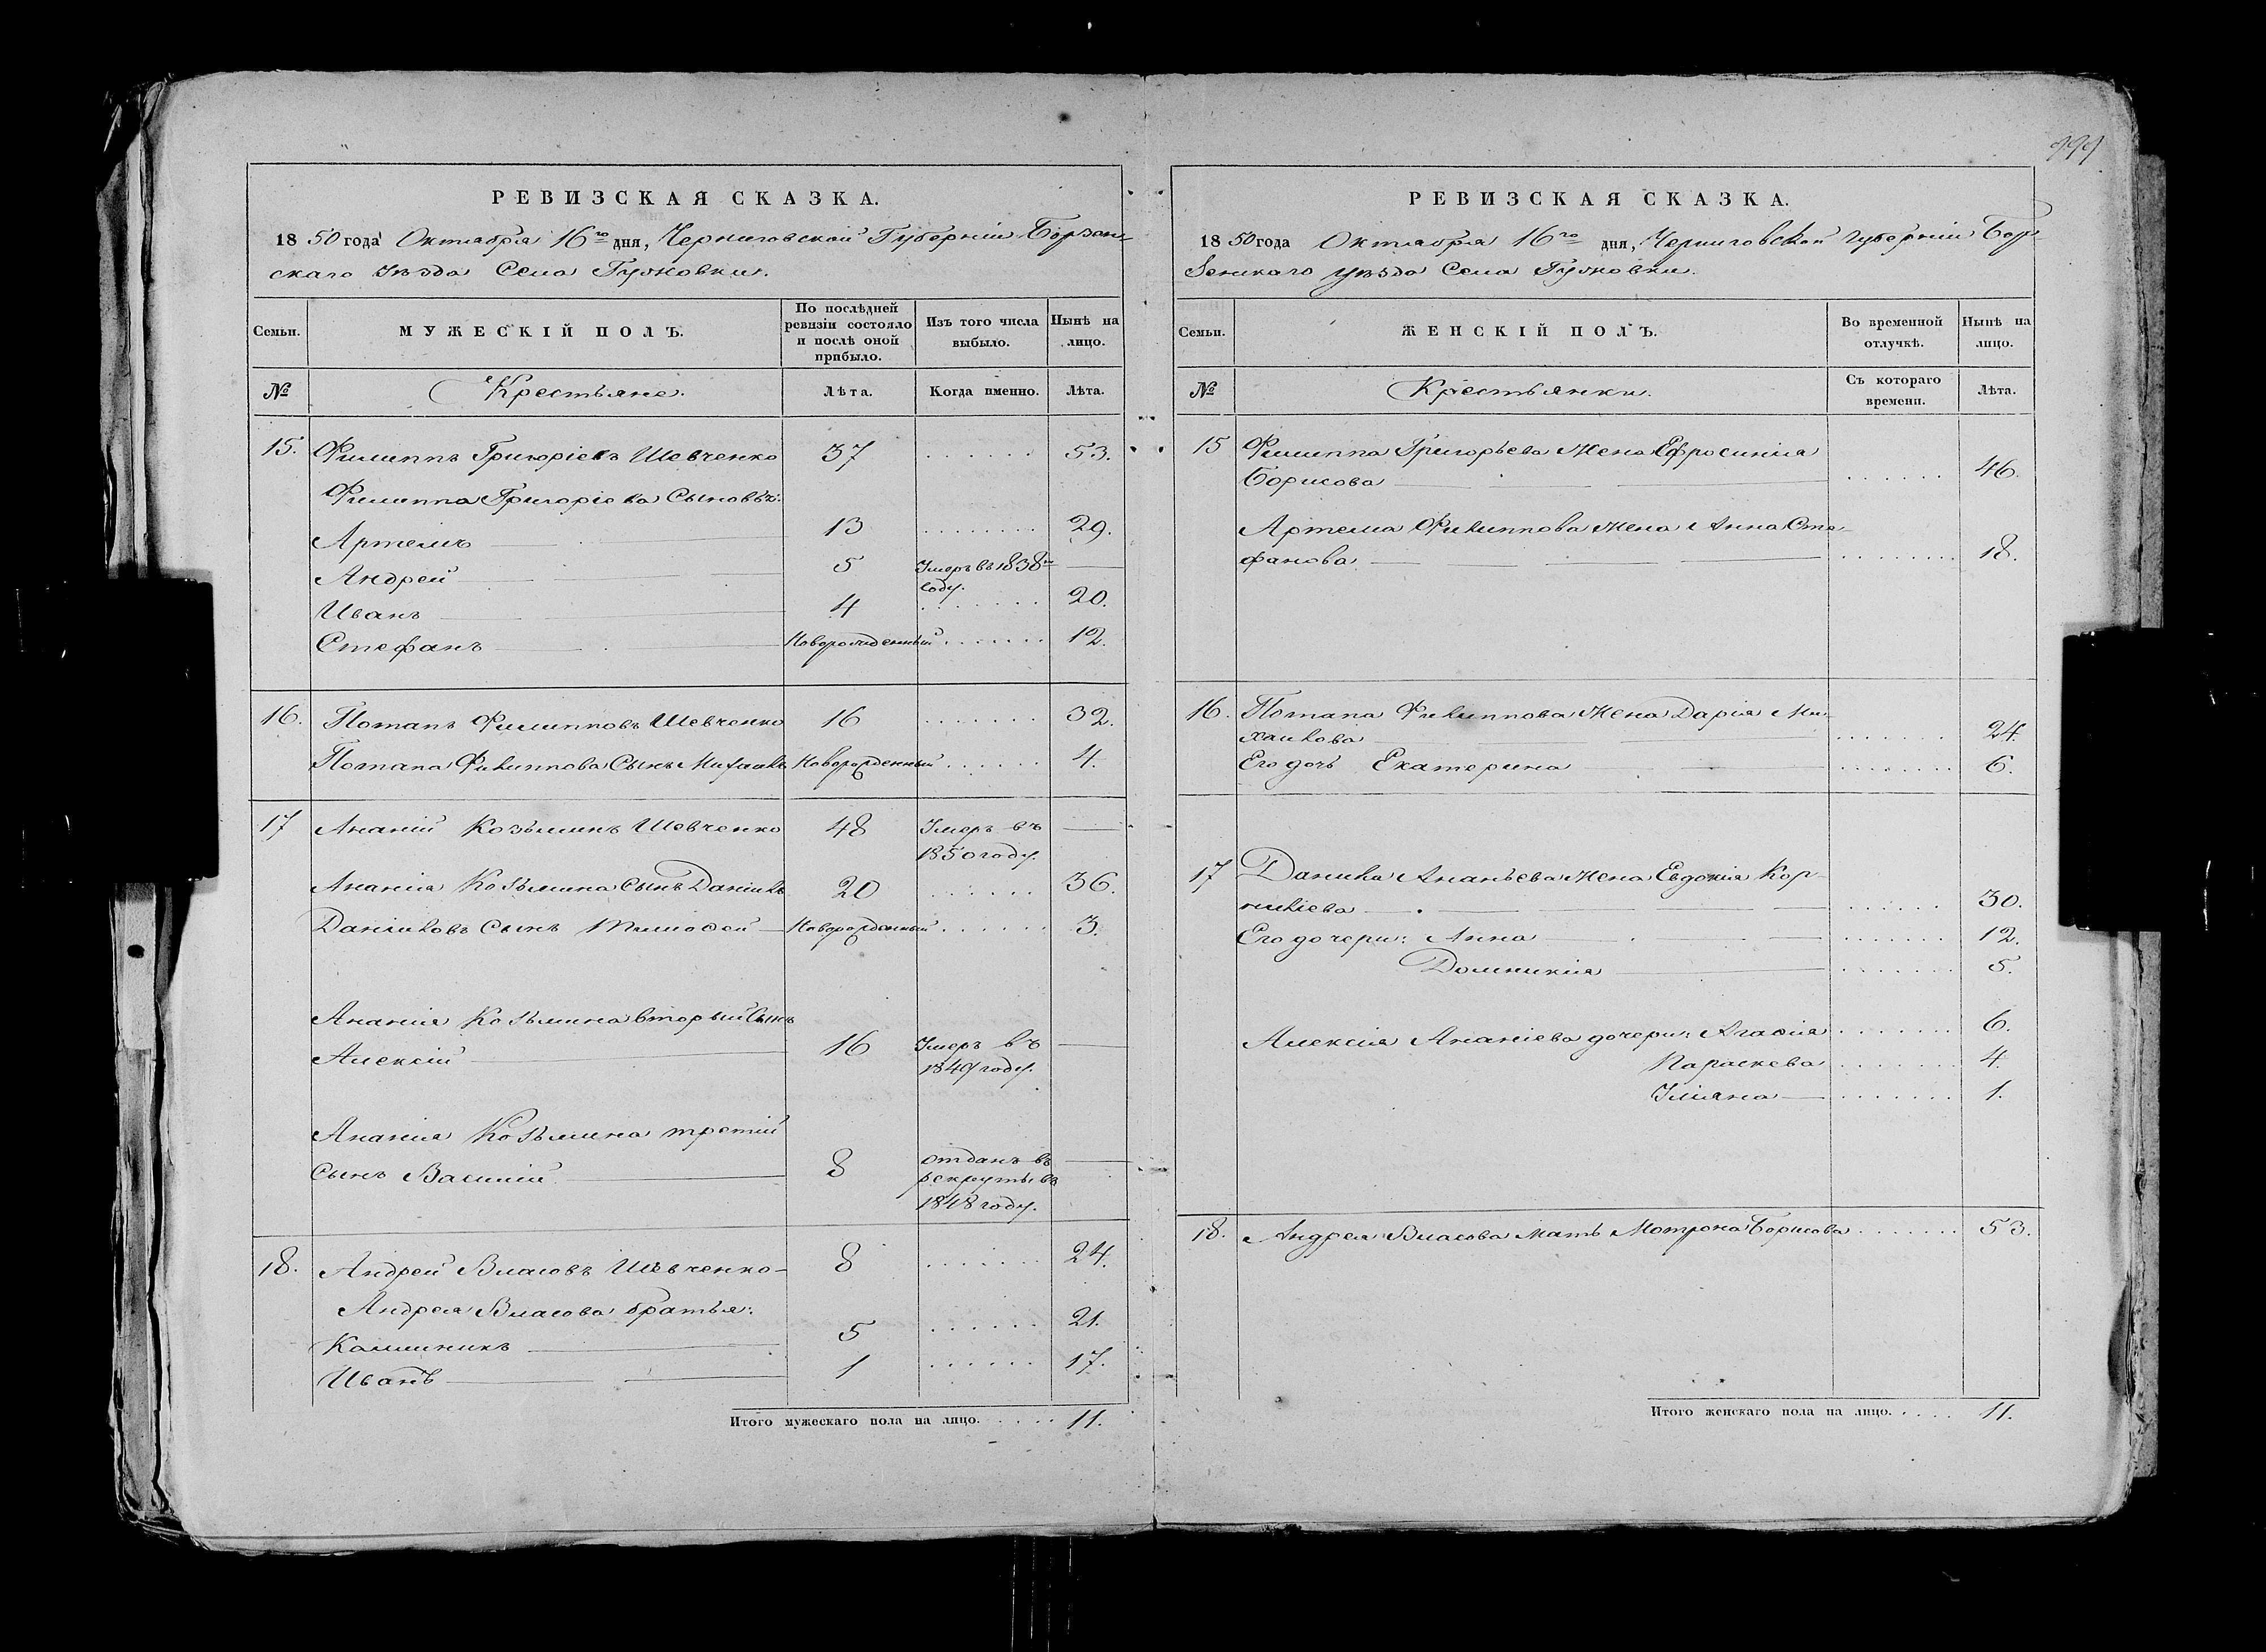 999
РЕВИЗСКАЯ СКАЗКА.
1850 года Октября 16го дня, Черниговской Губерніи Борзен-
скаго Уѣзда Села Гужовки.
Семьи.
МУЖЕСКІЙ ПОЛЪ.
По послѣдней ревизіи состояло и послѣ оной прибыло.
Изъ того числа выбыло.
Нынѣ на лицо.
№
Крестьяне.
Лѣта.
Когда именно.
Лѣта.
15. Филиппъ Григоріевъ Шевченко 37 . . . . . . 53.
Филиппа Григоріева Сыновья:
Артемъ 13 . . . . . . 29.
Андрей 5 Умеръ въ 1838м
году.
Иванъ 4 . . . . . . 20.
Стефанъ Новорожденный . . . . . . 12.
16. Потапъ Филипповъ Шевченко 16 . . . . . . 32.
Потапа Филиппова Сынъ Михаилъ Новорожденный . . . . . 4.
17 Ананій Козьминъ Шевченко 48 Умеръ въ
1850 году.
Ананія Козьмина сынъ Даніилъ 20 . . . . . . 36.
Даніиловъ Сынъ Тимофей Новорожденный . . . . . . 3.
Ананія Козьмина вторый Сынъ
Алексій 16 Умеръ въ
1849 году.
Ананія Козьмина третій
Сынъ Василій 8 отданъ въ
рекруты въ
1848 году.
18. Андрей Власовъ Шевченко 8 . . . . . . 24.
Андрея Власова братья:
Калиникъ 5 . . . . . . 21.
Иванъ 1 . . . . . . 17.
Итого мужескаго пола на лицо. . . . . 11.
РЕВИЗСКАЯ СКАЗКА.
1850 года Октября 16го дня, Черниговской Губерніи Бор-
зенскаго уѣзда Села Гужовки.
Семьи.
ЖЕНСКІЙ ПОЛЪ.
Во временной отлучкѣ.
Нынѣ на лицо.
№
Крестьянки.
Съ котораго времени.
Лѣта.
15 Филиппа Григорьева Жена Ефросинія
Борисова . . . . . . 46.
Артема Филиппова Жена Анна Сте-
фанова . . . . . . 18.
16. Потапа Филиппова Жена Дарія Ми-
хаилова . . . . . . 24.
Его дочь Екатерина . . . . . . 6.
17 Данила Ананьева жена Евдокія Кор-
нилієва . . . . . . 30.
Его дочери: Анна . . . . . . 12.
Домникия . . . . . . 5.
Алексія Ананіева дочери: Агафія . . . . . . 6.
Параскева . . . . . . 4.
Уліяна . . . . . . 1.
18. Андрея Власова мать Мотрона Борисова . . . . . . 53.
Итого женскаго пола на лицо. . . . . 11.